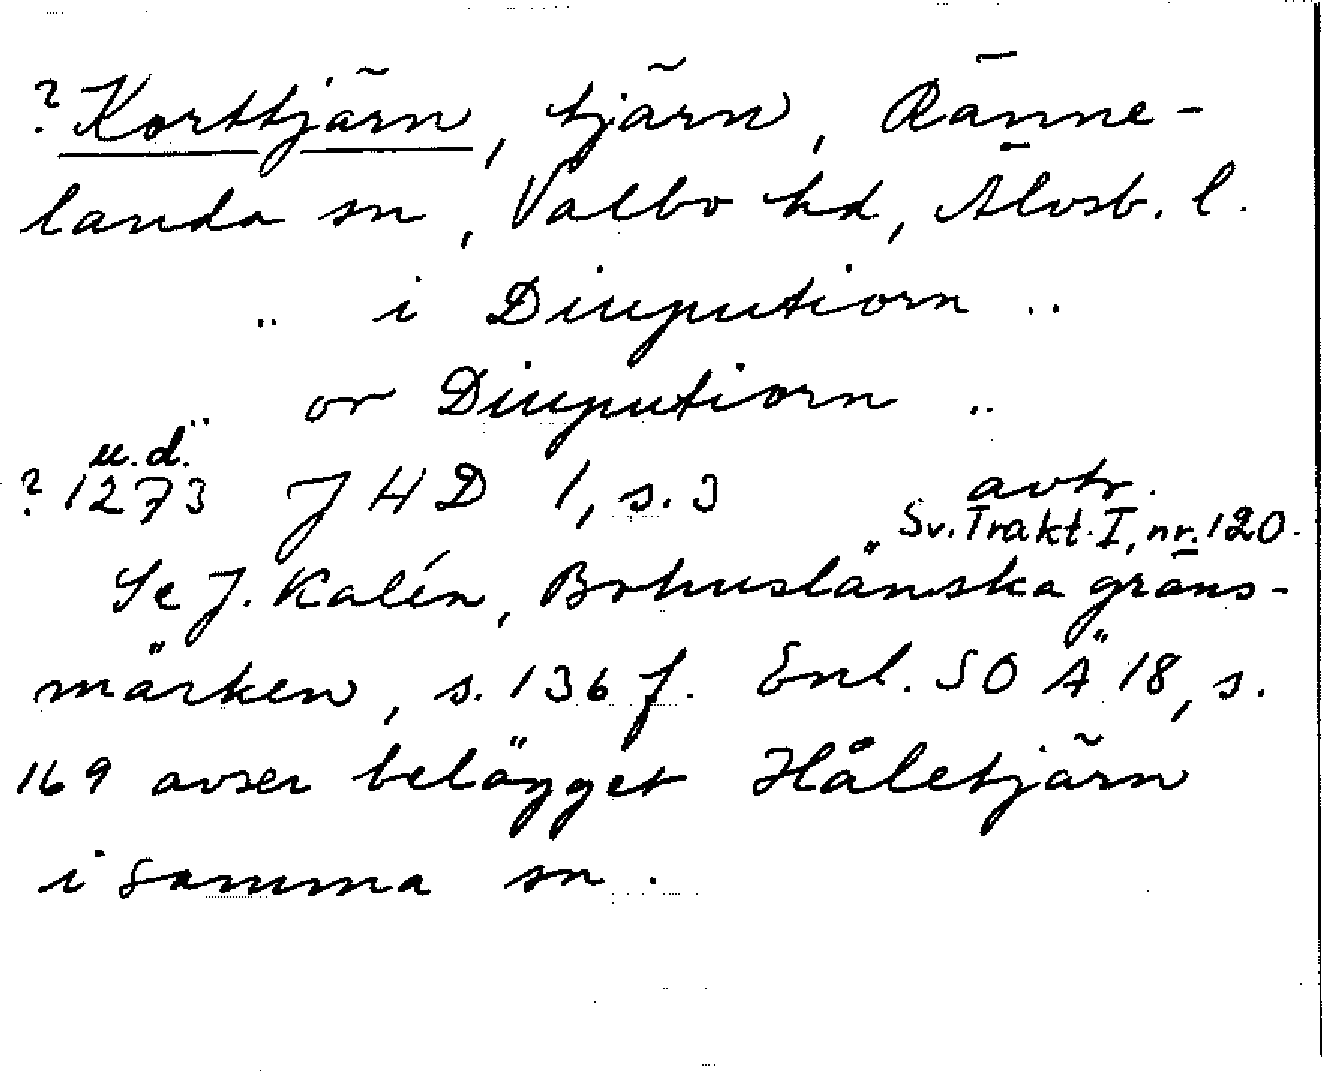 ? Korttjärn, tjärn, Ränne-
landa sn, Valbo hd, Älvsb. l.
.. i Diuputiorn ..
.. or Diuputiorn ..
u.d.
? 1273 JHD 1, s. 3 avtr.
Sv. Trakt. I, nr. 120.
Se J. Kalén, Bohuslänska gräns-
märken, s. 136 f. Enl. SOÄ 18, s.
169 avser belägget Håletjärn
i samma sn.